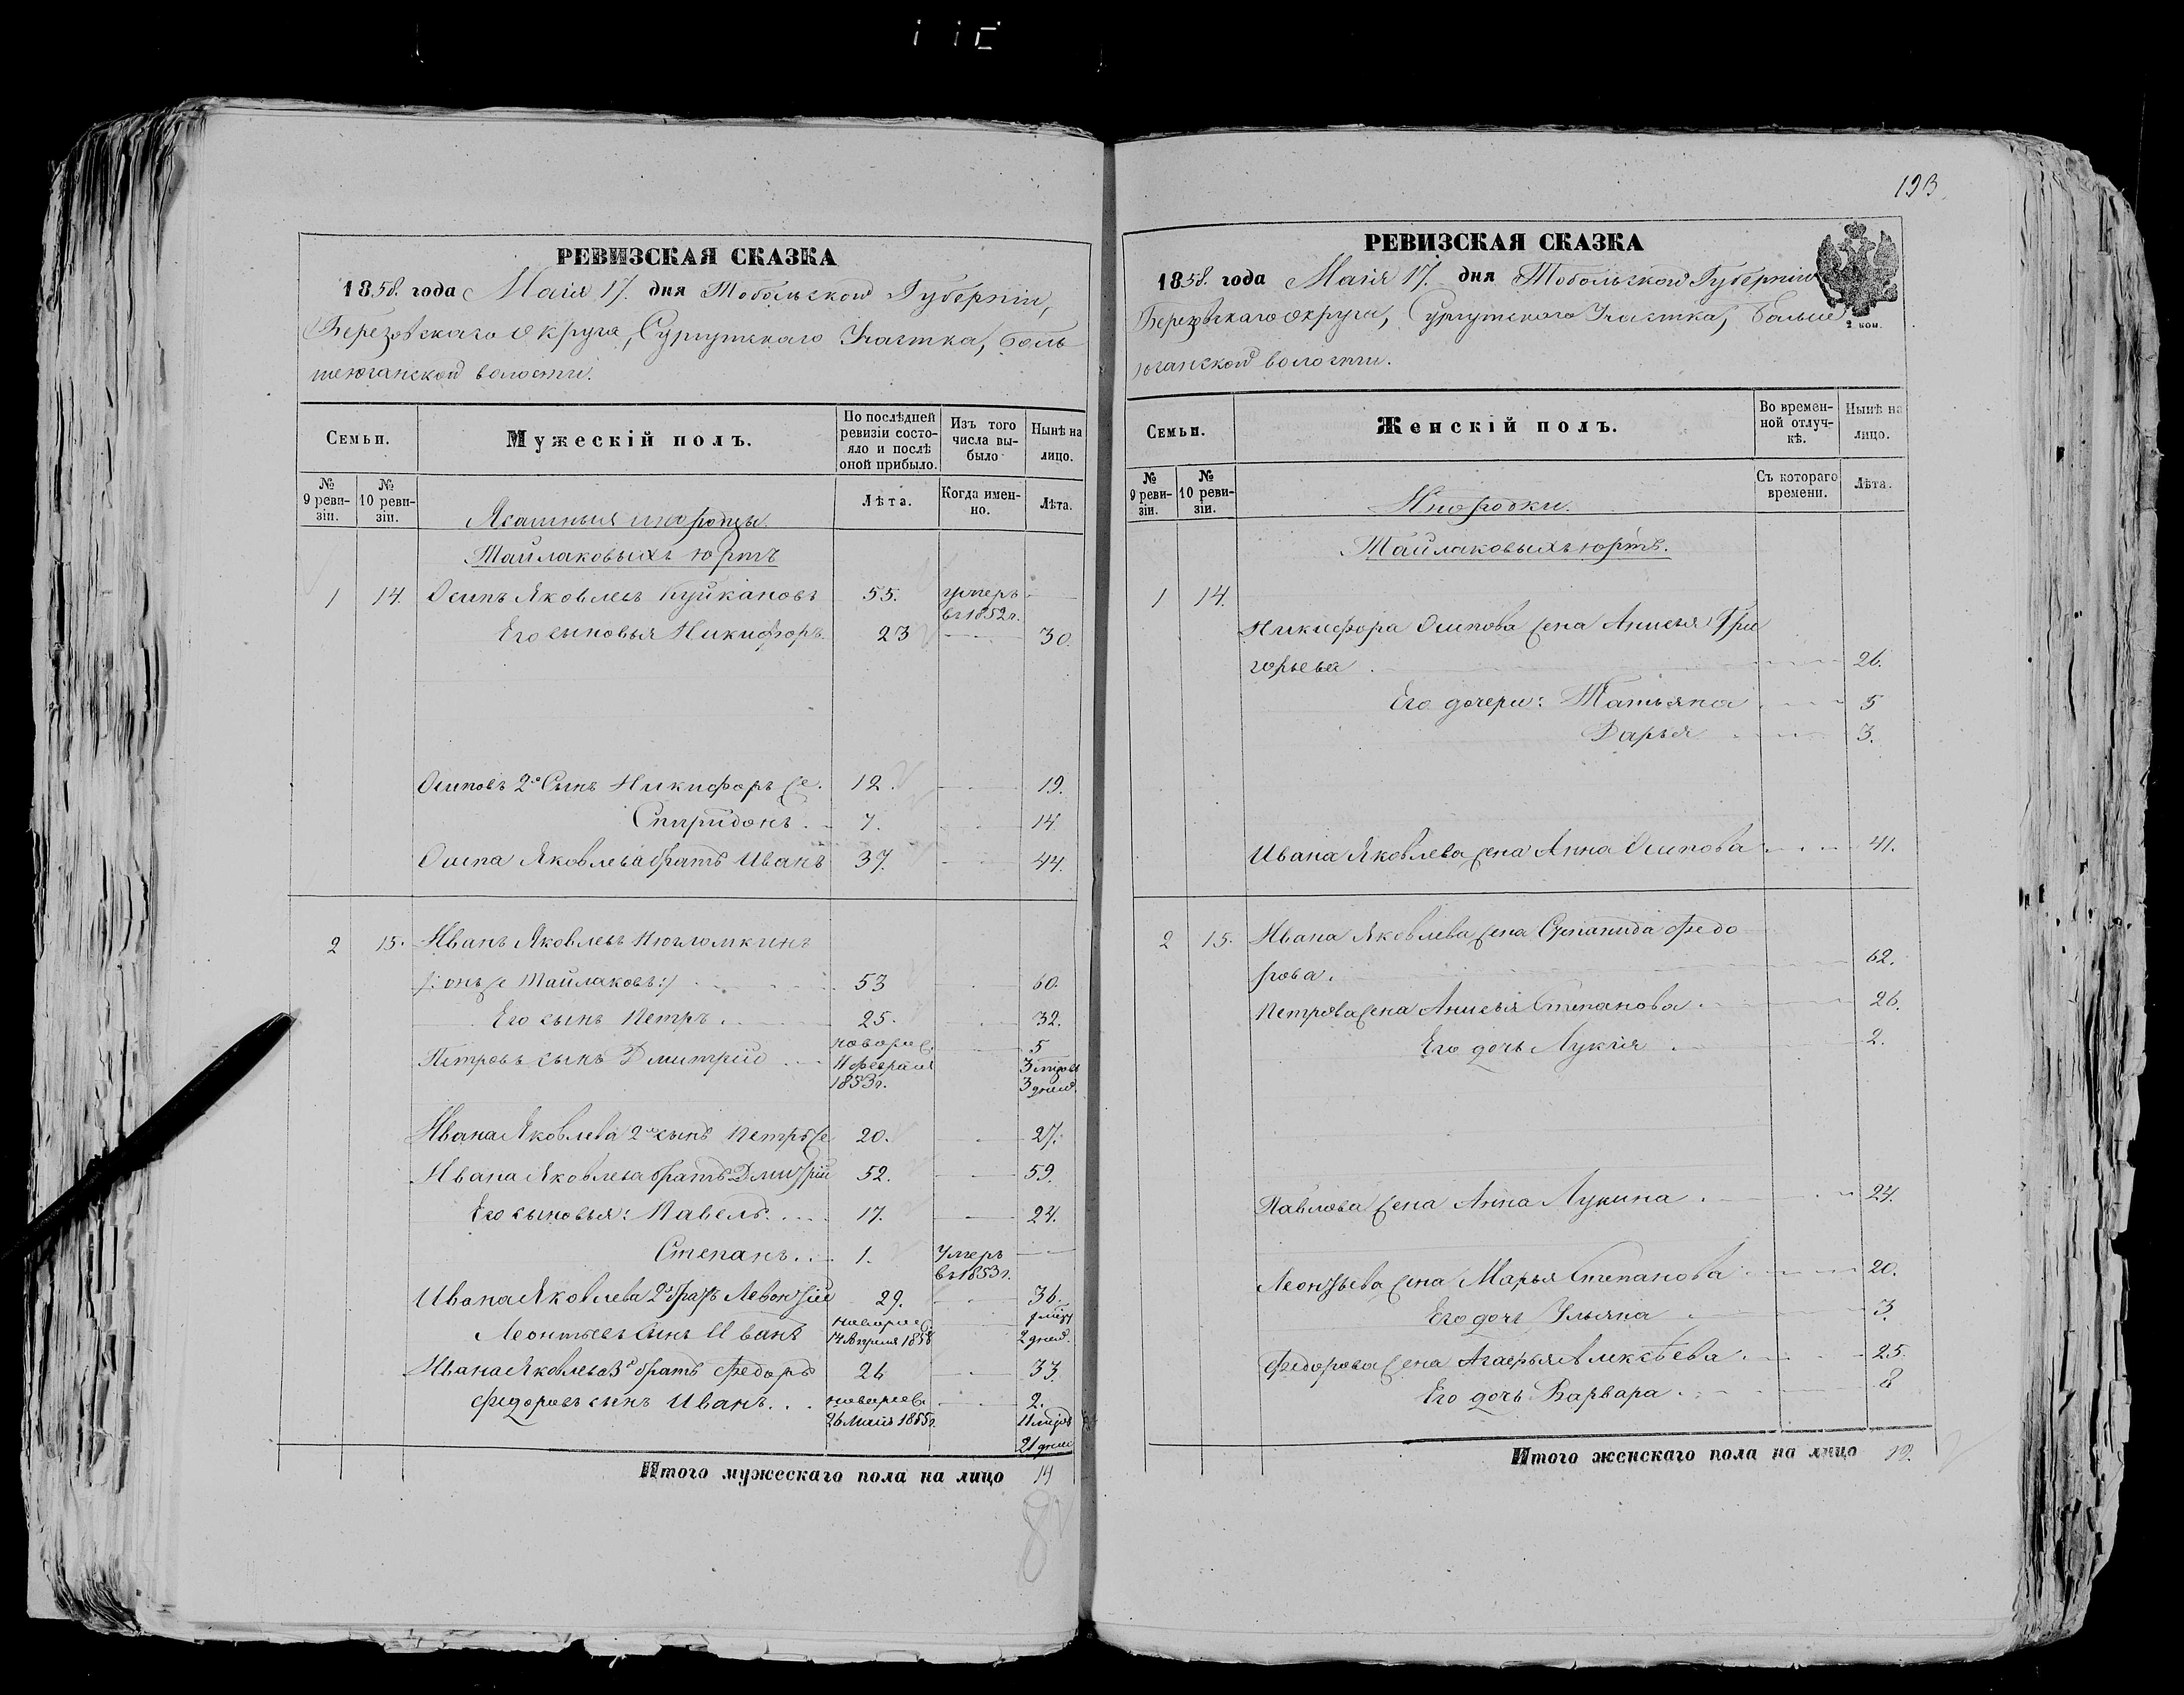 РЕВИЗСКАЯ СКАЗКА
1858. года Маія 17. дня Тобольской Губерніи,
Березовскаго округа, Сургутскаго Участка, боль
шеюганской волости.
Семьи.
Мужескій полъ.
По послѣдней ревизіи состояло и послѣ оной прибыло.
Изъ того числа выбыло
Нынѣ на лицо.
№ 9 ревизіи.
№ 10 ревизіи.
Лѣта.
Когда именно.
Лѣта.
Ясашныя инородцы
Тайлаковыхъ юртъ
1 14. Осипъ Яковлевъ Куйкановъ 55. умеръ
въ 1852 г.
Его сыновья Никифоръ 23 30.
Осиповъ 2й Сынъ Никифоръ же. 12. 19.
Спиридонъ 7. 14
Осипа Яковлева братъ Иванъ 37. 44.
2 15. Иванъ Яковлевъ
/:онъ же Тайлаковъ:/ 53 60.
Его сынъ Петръ 25. 32.
Петровъ сынъ Дмитрій новорож. 5
11 февраля 3 мѣсяц
1853 г. 3 дней.
Ивана Яковлева 2й сынъ Петръ же 20. 27.
Ивана Яковлева братъ Дмитрій 52. 59.
Его сыновья: Павелъ 17. 24.
Степанъ 1. Умеръ
въ 1853 г.
Ивана Яковлева 2й братъ Левонтій 29. 36.
Леонтьевъ Сынъ Иванъ новорож.
Апреля 1858 2 дней.
Ивана Яковлева 3й братъ Федоръ 26 33.
Федоровъ сынъ Иванъ новорож. 2.
26 Маія 1855 г. 11 мѣсяц
21 дней
Итого мужескаго пола на лицо 14
82
193
РЕВИЗСКАЯ СКАЗКА
1858. года Маія 17. дня Тобольской Губерніи
Березовскаго округа, Сургутскаго Участка, больше
юганской волости.
2 коп.
Семьи.
Женскій полъ.
Во временной отлучкѣ.
Нынѣ на лицо.
№ 9 ревизіи.
№ 10 ревизіи.
Съ котораго времени.
Лѣта.
Инородки.
Тайлаковыхъ юртъ.
1 14.
Никифора Осипова жена Анисья Гри
горьева 26.
Его дочери: Татьяна 5
Дарья 3.
Ивана Яковлева жена Анна Осипова 41.
2 15. Ивана Яковлева жена Степанида Федо
рова. 62.
Петрова жена Анисья Степанова 26.
Его дочь Лукія 2.
Павлова жена Анна Лукина 24.
Леонтьева жена Марья Степанова 20.
Его дочь Ульяна 3.
Федорова жена Агафья Алексѣева 25.
Его дочь Варвара 8
Итого женскаго пола на лицо 12.